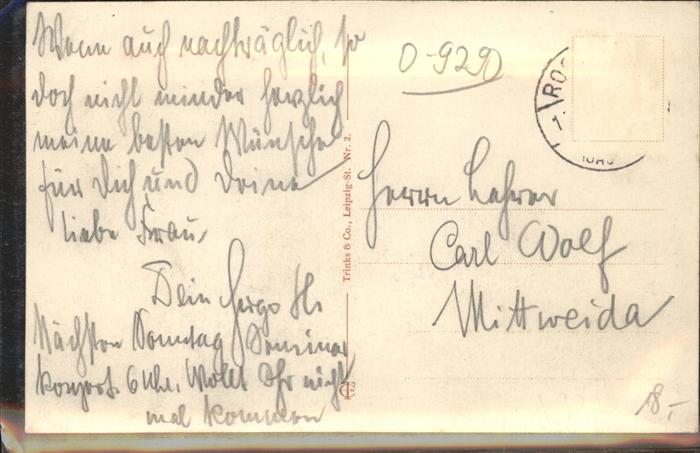 Wenn auch nachträglich, so
doch nicht minder herzlich
meine besten Wünsche
für Dich und Deine
liebe Frau.
Dein
Nächsten Sonntag Seminar
konzert. 6 Uhr. Wollt Ihr nicht
mal kommen
Trinks & Co., Leipzig-St. Nr. 2.
0-929
RO
Herrn Lehrer
Carl Wolf
Mittweida
18.-